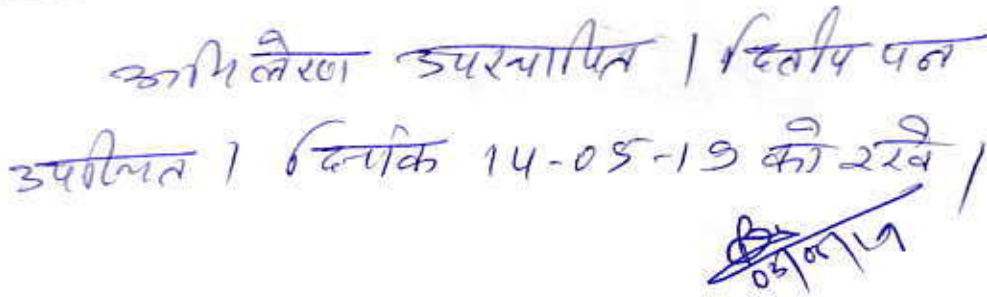 अभिलेख उपस्थापित । द्वितीय पक्ष
उपस्थित । दिनांक 14-05-19 को रखें ।